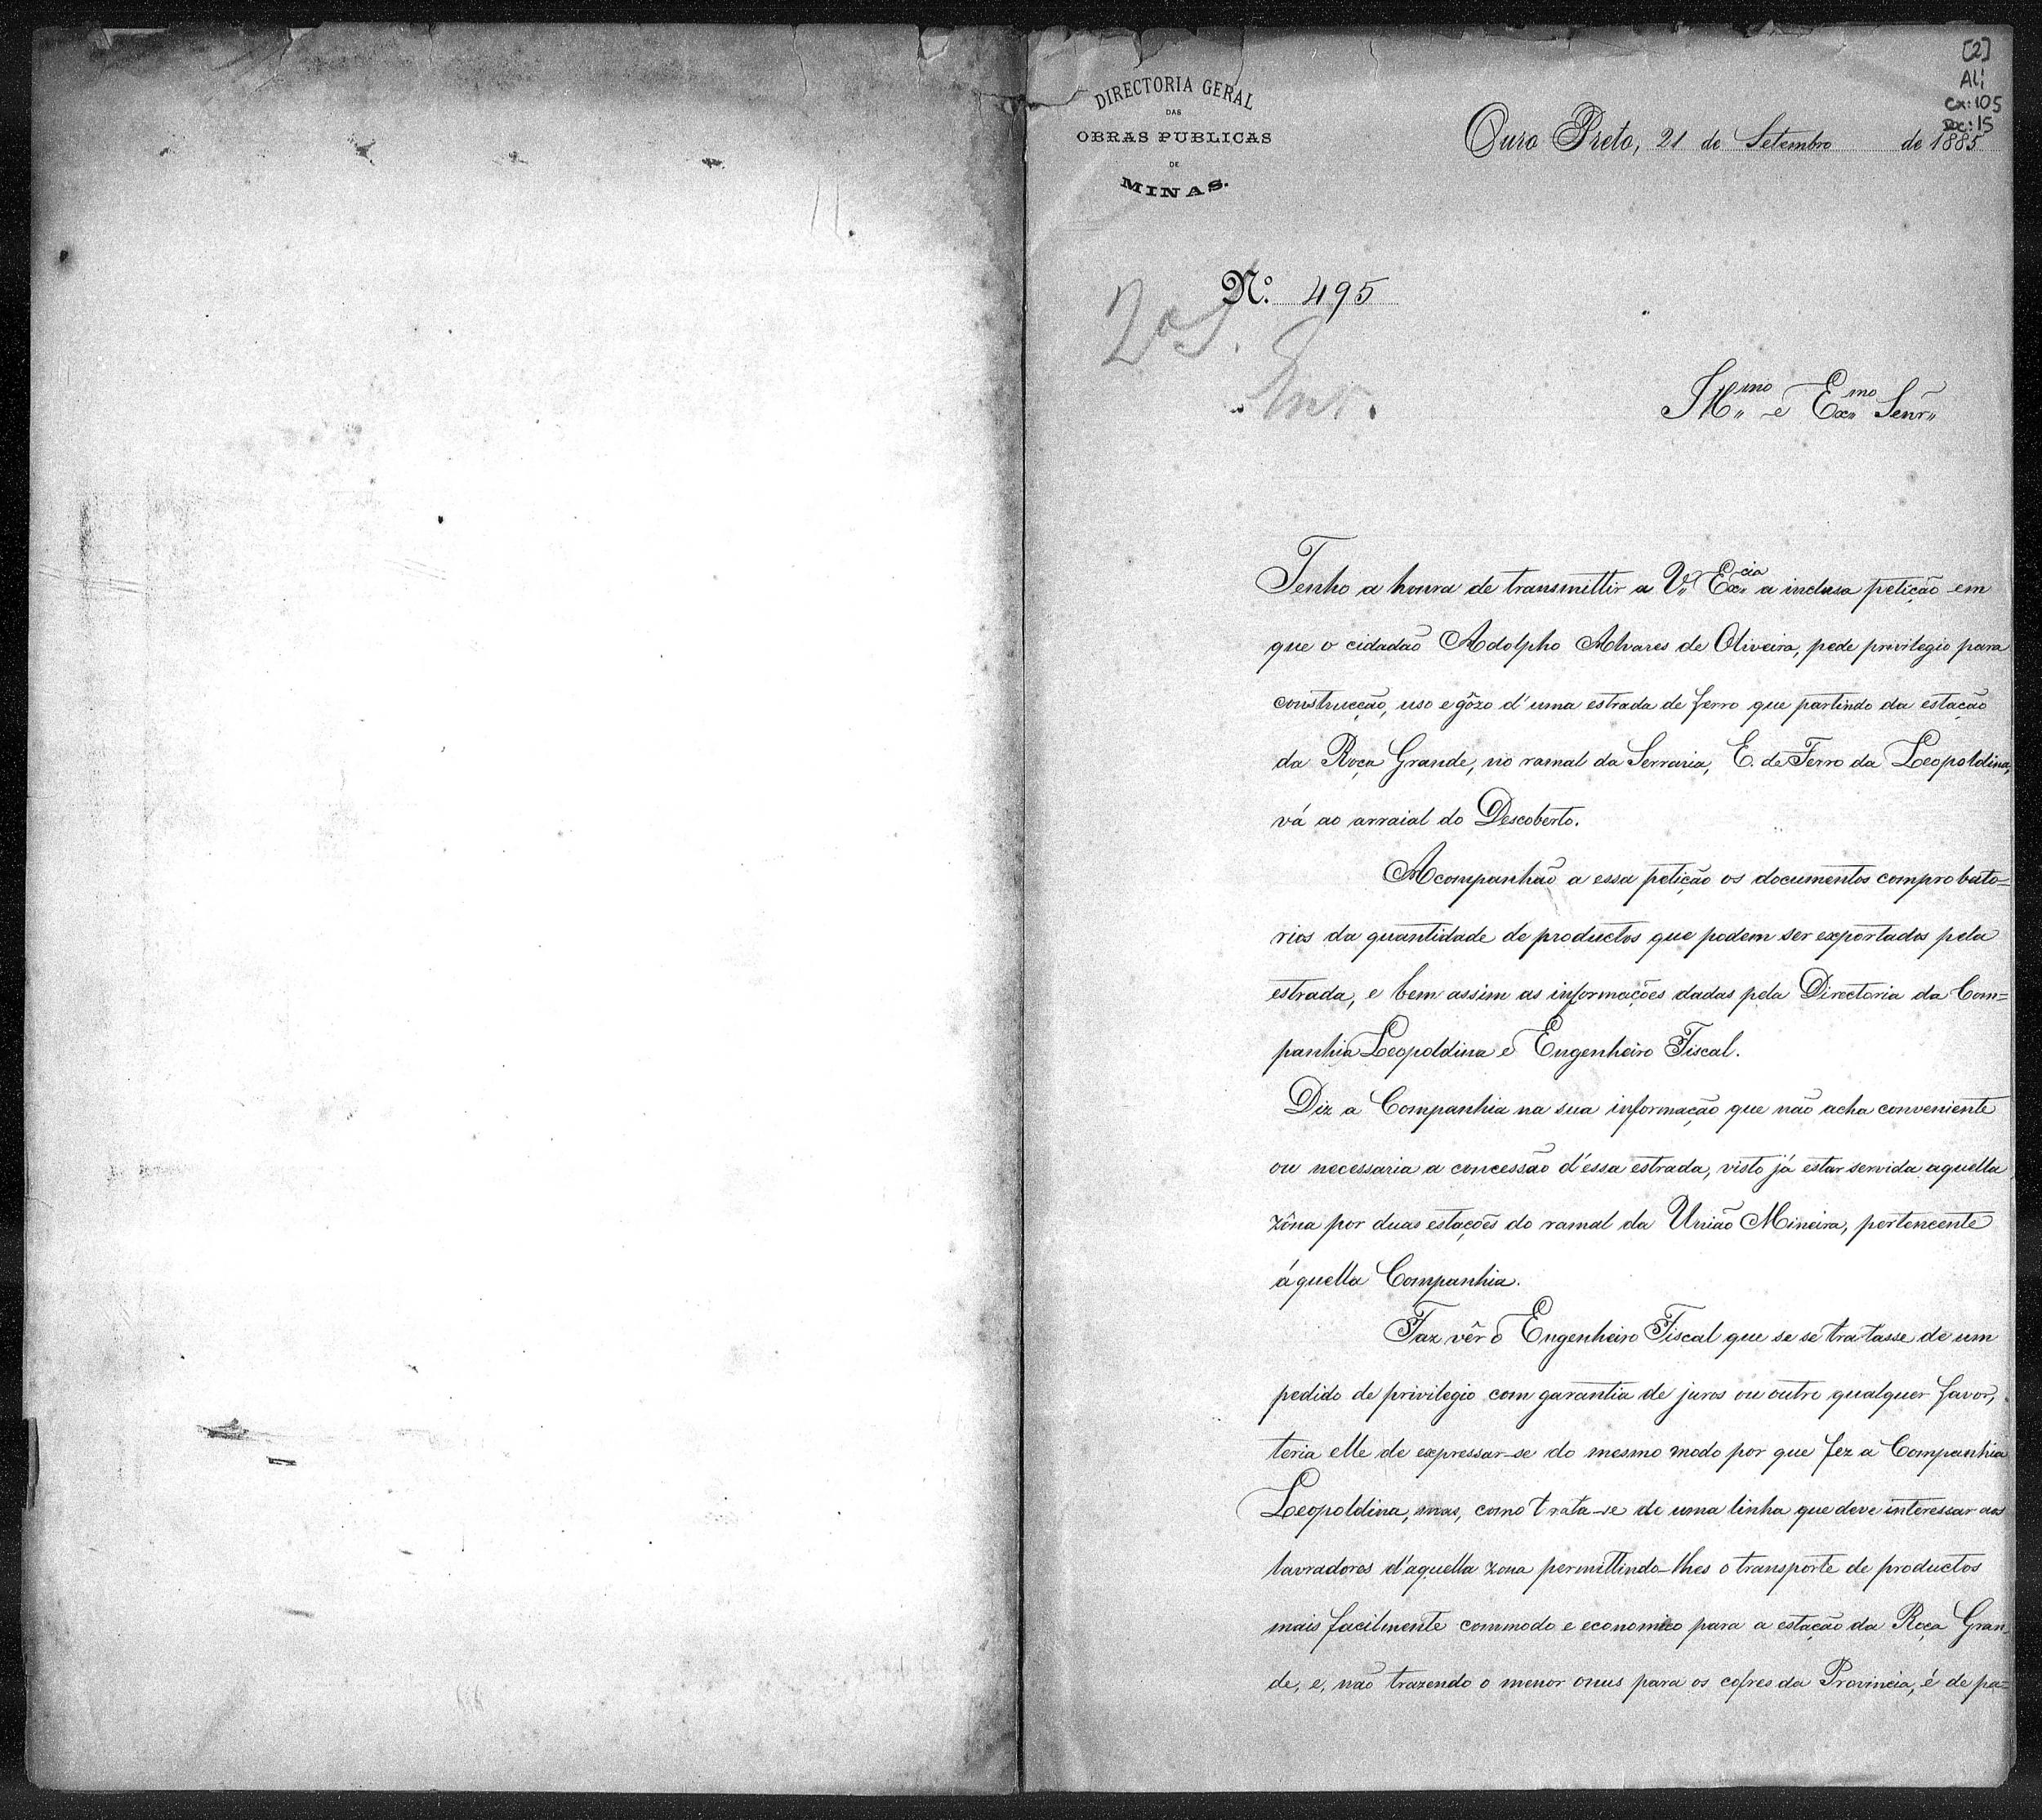 [2]
Ali
Cx: 105
Doc: 15
DIRECTORIA GERAL
DAS
OBRAS PUBLICAS
DE
MINAS.
Ouro Preto, 21 de Setembro de 1885
Nº. 495
Ill.mo e Ex.mo Senr.
Tenho a honra de transmittir a V. Ex.cia a inclusa petição em
que o cidadão Adolpho Alvares de Oliveira, pede privilegio para
construcção, uso e gôzo d'uma estrada de ferro que partindo da estação
da Roça Grande, no ramal da Serraria, E. de Ferro da Leopoldina,
vá ao arraial do Descoberto.
Acompanhão a essa petição os documentos comprobato=
rios da quantidade de productos que podem ser exportados pela
estrada, e bem assim as informações dadas pela Directoria da Com=
panhia Leopoldina e Engenheiro Fiscal.
Diz a Companhia na sua informação que não acha conveniente
ou necessaria a concessão d'essa estrada, visto já estar servida aquella
zôna por duas estações do ramal da União Mineira, pertencente
áquella Companhia.
Faz vêr o Engenheiro Fiscal que se se tratasse de um
pedido de privilegio com garantia de juros ou outro qualquer favor,
teria elle de expressar-se do mesmo modo por que fez a Companhia
Leopoldina, mas, como trata-se de uma linha que deve interessar aos
lavradores d'aquella zona permittindo-lhes o transporte de productos
mais facilmente commodo e economico para a estação da Roça Gran=
de, e, não trazendo o menor onus para os cofres da Provincia, é de pa=